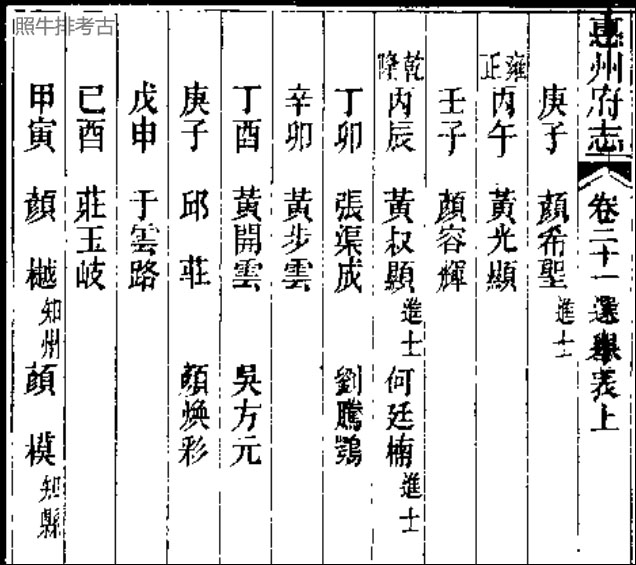 照牛排考古
惠州府志 卷二十一 選舉表上
庚子 顏希聖 進士
雍正 丙午 黃光顯
壬子 顏容輝
乾隆 丙辰 黃叔顯 進士 何廷楠 進士
丁卯 張渠成 劉騰鶚
辛卯 黃步雲
丁酉 黃開雲 吳方元
庚子 邱莊 顏煥彩
戊申 于雲路
己酉 莊玉岐
甲寅 顏樾 知州 顏模 知縣